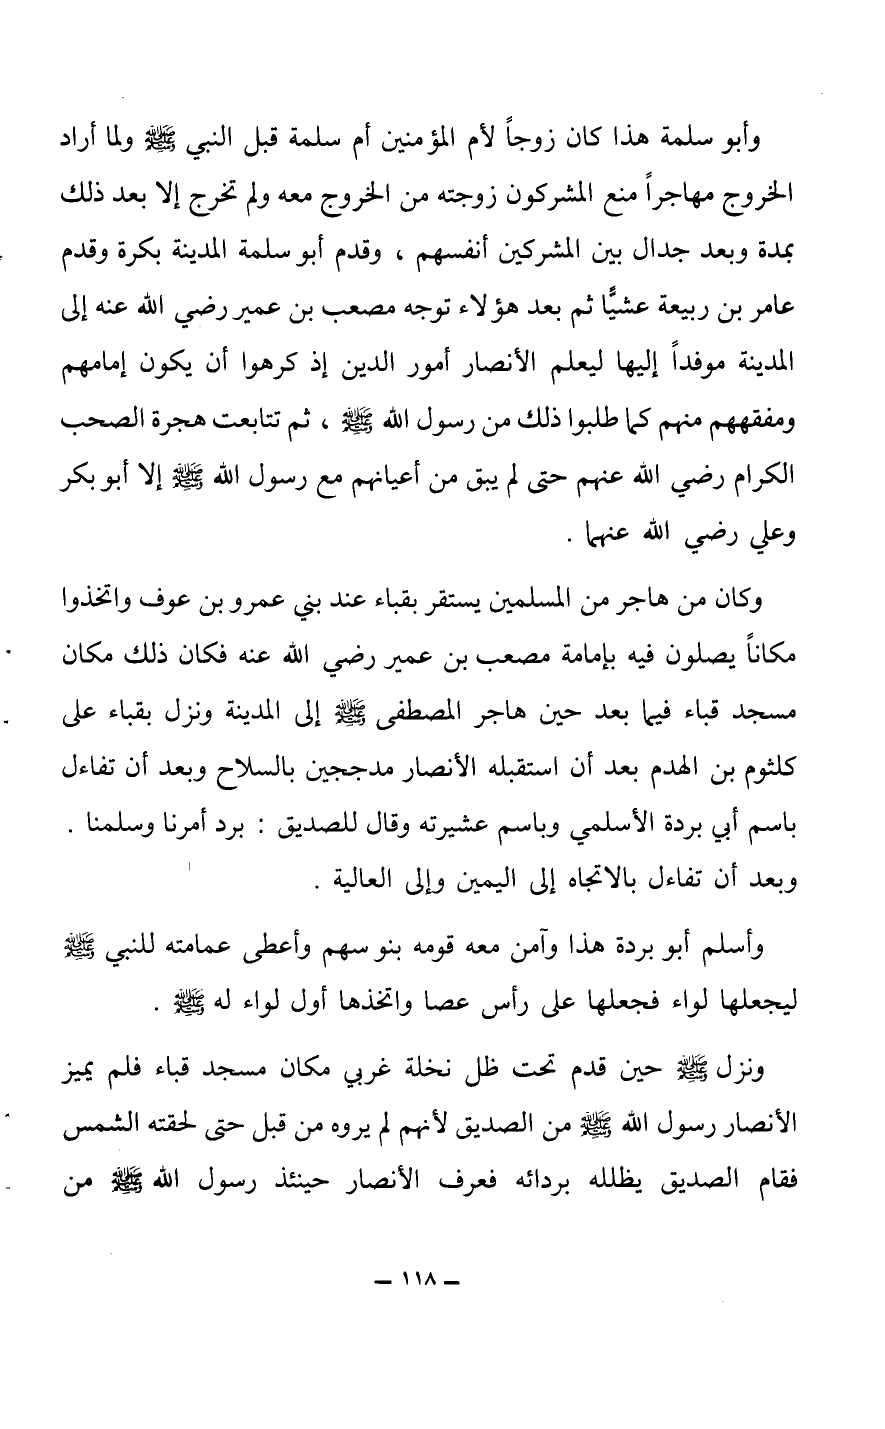 وأبو سلمة هذا كان زوجاً لأم المؤمنين أم سلمة قبل النبي ﷺ ولما أراد
الخروج مهاجراً منع المشركون زوجته من الخروج معه ولم تخرج إلا بعد ذلك
بمدة وبعد جدال بين المشركين أنفسهم ، وقدم أبو سلمة المدينة بكرة وقدم
عامر بن ربيعة عشيًّا ثم بعد هؤلاء توجه مصعب بن عمير رضي الله عنه إلى
المدينة موفداً إليها ليعلم الأنصار أمور الدين إذ كرهوا أن يكون إمامهم
ومفقههم منهم كما طلبوا ذلك من رسول الله ﷺ ، ثم تتابعت هجرة الصحب
الكرام رضي الله عنهم حتى لم يبق من أعيانهم مع رسول الله ﷺ إلا أبو بكر
وعلي رضي الله عنهما .
وكان من هاجر من المسلمين يستقر بقباء عند بني عمرو بن عوف واتخذوا
مكاناً يصلون فيه بإمامة مصعب بن عمير رضي الله عنه فكان ذلك مكان
مسجد قباء فيما بعد حين هاجر المصطفى ﷺ إلى المدينة ونزل بقباء على
كلثوم بن الهدم بعد أن استقبله الأنصار مدججين بالسلاح وبعد أن تفاءل
باسم أبي بردة الأسلمي وباسم عشيرته وقال للصديق : برد أمرنا وسلمنا .
وبعد أن تفاءل بالاتجاه إلى اليمين وإلى العالية .
وأسلم أبو بردة هذا وآمن معه قومه بنو سهم وأعطى عمامته للنبي ﷺ
ليجعلها لواء فجعلها على رأس عصا واتخذها أول لواء له ﷺ .
ونزل ﷺ حين قدم تحت ظل نخلة غربي مكان مسجد قباء فلم يميز
الأنصار رسول الله ﷺ من الصديق لأنهم لم يروه من قبل حتى لحقته الشمس
فقام الصديق يظلله بردائه فعرف الأنصار حينئذ رسول الله ﷺ من
– ١١٨ –